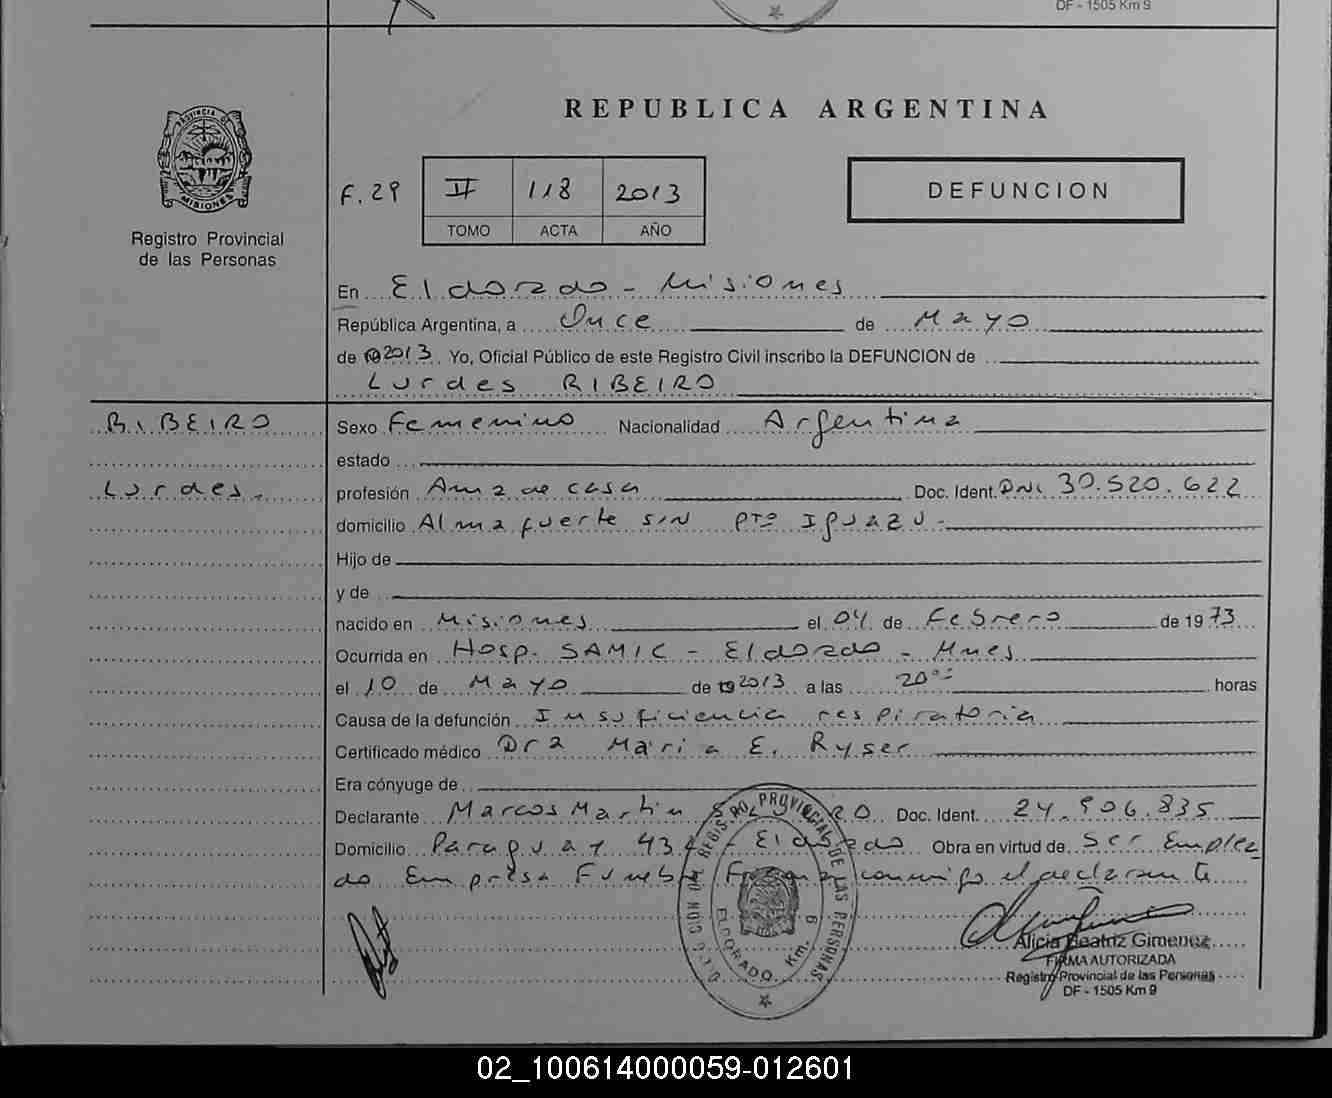 DF - 1505 Km 9
PROVINCIA DE
MISIONES
Registro Provincial
de las Personas
REPUBLICA ARGENTINA
F. 29
II 118 2013
TOMO ACTA AÑO
DEFUNCION
En Eldorado - Misiones
República Argentina, a Once de Mayo
de 2013. Yo, Oficial Público de este Registro Civil inscribo la DEFUNCION de
Lurdes RIBEIRO
RIBEIRO
Lurdes.
Sexo Femenino Nacionalidad Argentina
estado
profesión Ama de casa Doc. Ident. DNI 30.520.622
domicilio Almafuerte S/N Pto Iguazu-
Hijo de
y de
nacido en Misiones el 04 de Febrero de 1973
Ocurrida en Hosp. SAMIC - Eldorado - Mnes
el 10 de Mayo de 2013 a las 20°° horas
Causa de la defunción Insuficiencia respiratoria
Certificado médico Dra Maria E. Ryser
Era cónyuge de
Declarante Marcos Martin RO Doc. Ident. 24.906.835
Domicilio Paraguay - Eldorado Obra en virtud de Ser Emplea
do Empresa Funeb Firma conmigo el declarante
REGISTRO PROVINCIAL DE LAS PERSONAS
ELDORADO. Km. 9
Alicia Beatriz Gimenez
FIRMA AUTORIZADA
Registro Provincial de las Personas
DF - 1505 Km 9
02_100614000059-012601